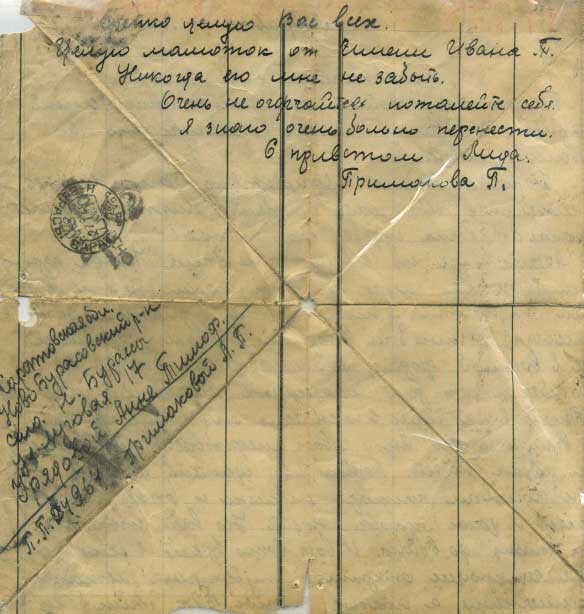 целую Вас всех.
Целую мамоток от имени Ивана П.
Никогда его мне не забыть.
Очень не огорчайтесь пожалейте себя
Я знаю очень больно перенести.
С приветом Лида.
Примакова П.
Саратовская обл.
Ново Бурасовский р-н
село Н. Бурасы
ул. Луговая 17
Грядовой Анне Тимоф.
П.П. Примаковой Л. П.